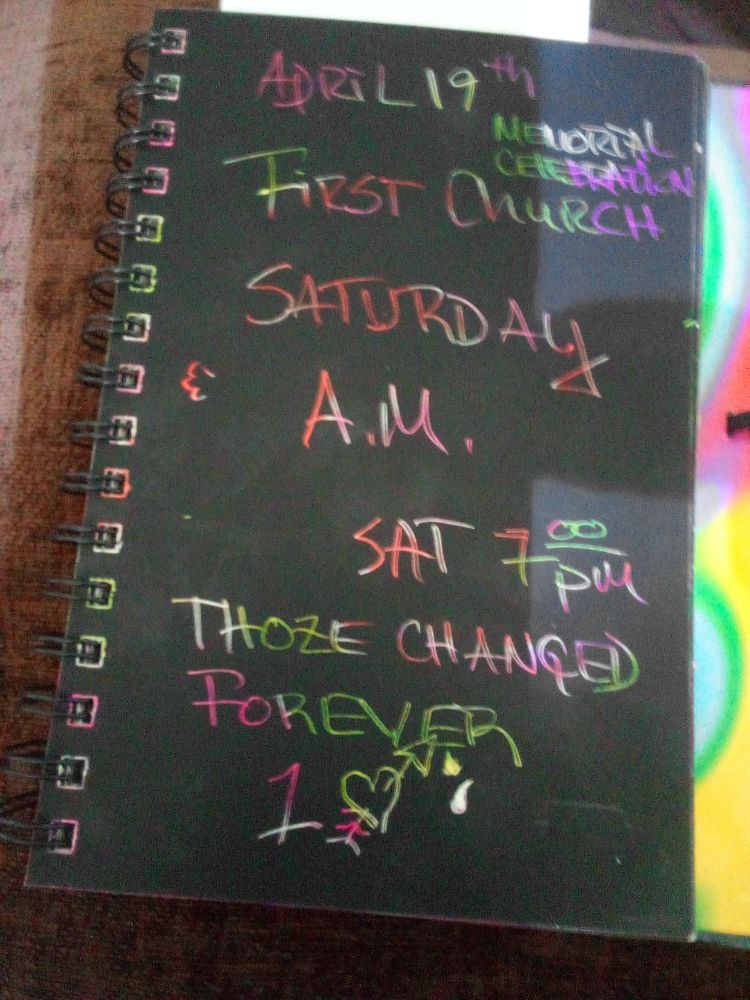 APRIL 19th
MEMORIAL
CELEBRATION
FIRST CHURCH
SATURDAY
A.M.
SAT 7 00
PM
THOZE CHANGED
FOREVER
1